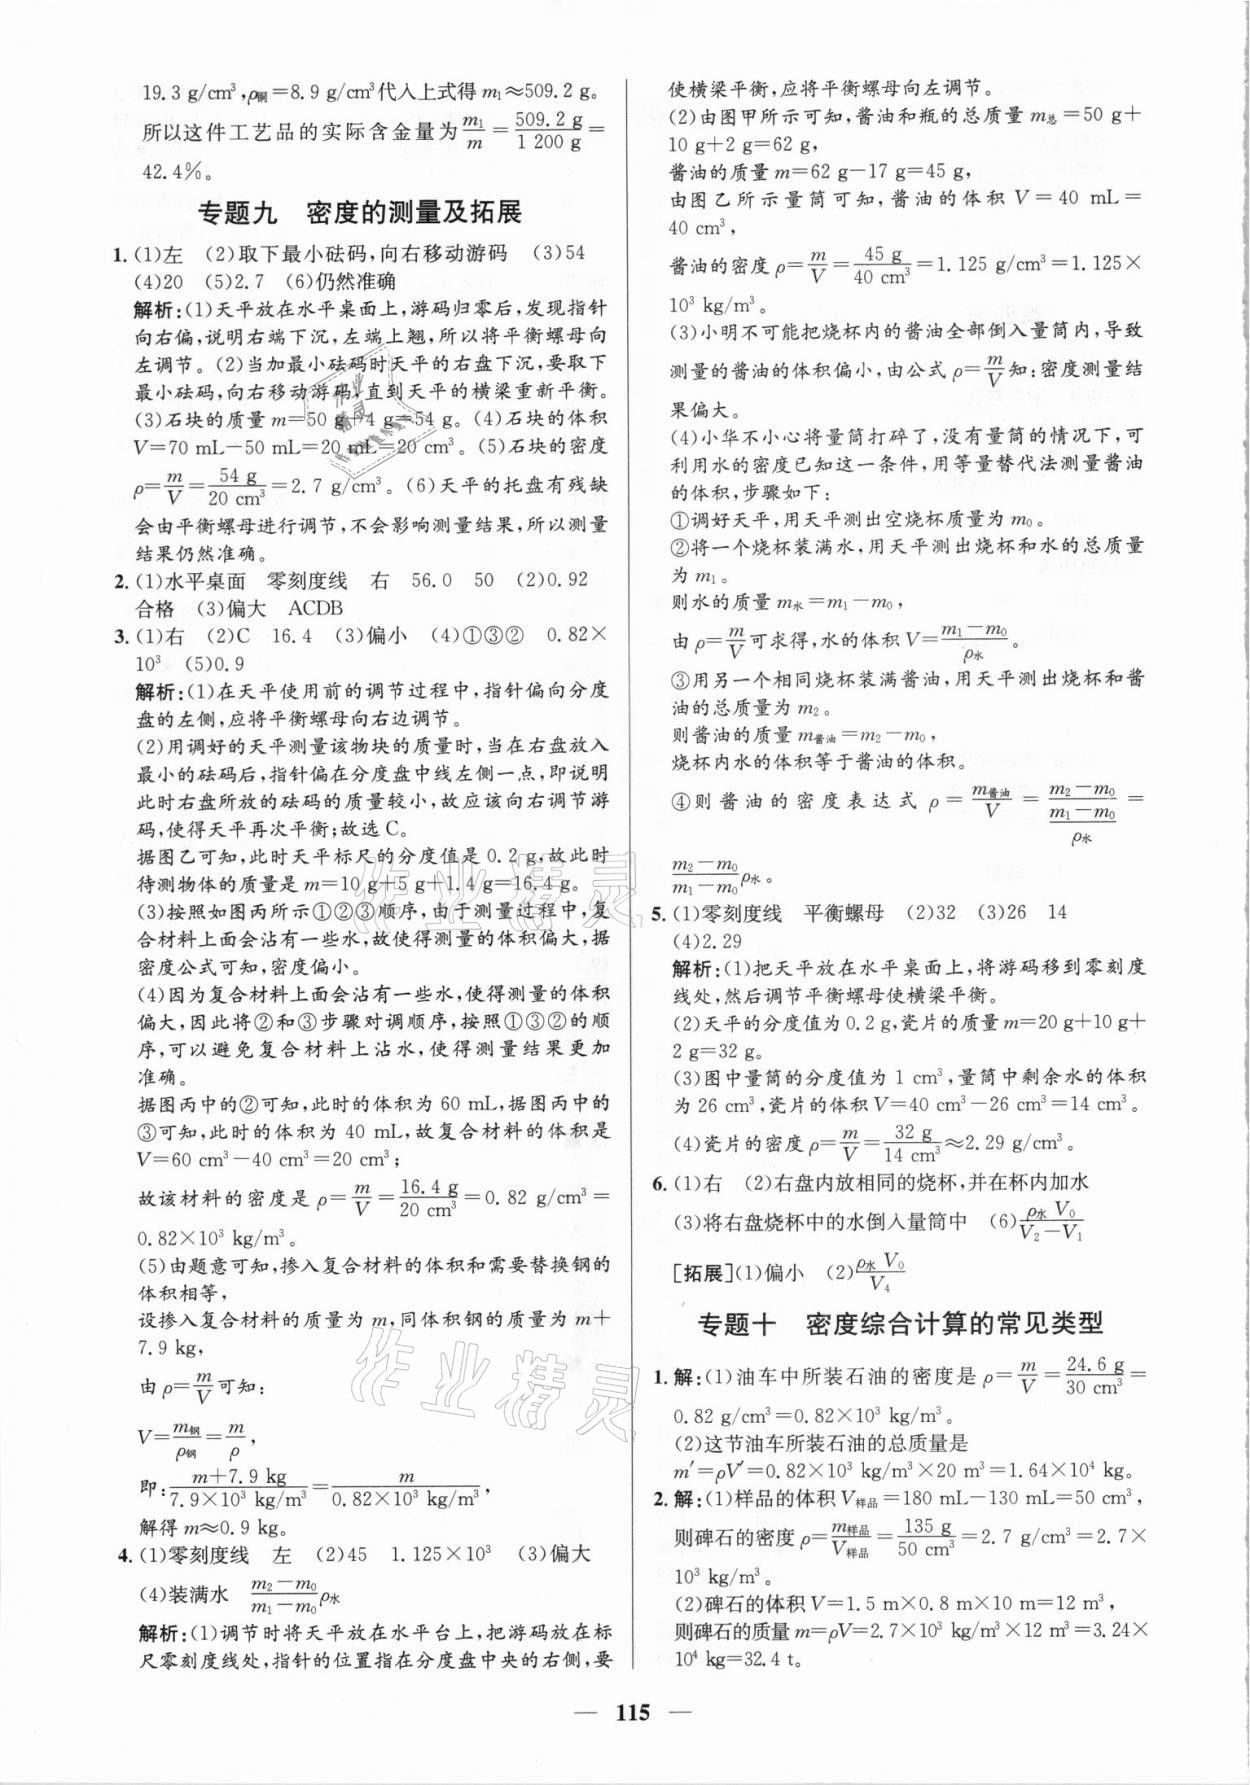 19.3 g/cm³,ρ铜=8.9 g/cm³代入上式得 m₁≈509.2 g。
所以这件工艺品的实际含金量为 m₁/m = 509.2 g/1 200 g =
42.4%。
专题九 密度的测量及拓展
1. (1)左 (2)取下最小砝码,向右移动游码 (3)54
(4)20 (5)2.7 (6)仍然准确
解析:(1)天平放在水平桌面上,游码归零后,发现指针
向右偏,说明右端下沉,左端上翘,所以将平衡螺母向
左调节。(2)当加最小砝码时天平的右盘下沉,要取下
最小砝码,向右移动游码,直到天平的横梁重新平衡。
(3)石块的质量 m=50 g+4 g=54 g。(4)石块的体积
V=70 mL-50 mL=20 mL=20 cm³。(5)石块的密度
ρ=m/V=54 g/20 cm³=2.7 g/cm³。(6)天平的托盘有残缺
会由平衡螺母进行调节,不会影响测量结果,所以测量
结果仍然准确。
2. (1)水平桌面 零刻度线 右 56.0 50 (2)0.92
合格 (3)偏大 ACDB
3. (1)右 (2)C 16.4 (3)偏小 (4)①③② 0.82×
10³ (5)0.9
解析:(1)在天平使用前的调节过程中,指针偏向分度
盘的左侧,应将平衡螺母向右边调节。
(2)用调好的天平测量该物块的质量时,当在右盘放入
最小的砝码后,指针偏在分度盘中线左侧一点,即说明
此时右盘所放的砝码的质量较小,故应该向右调节游
码,使得天平再次平衡;故选C。
据图乙可知,此时天平标尺的分度值是 0.2 g,故此时
待测物体的质量是 m=10 g+5 g+1.4 g=16.4 g。
(3)按照如图丙所示①②③顺序,由于测量过程中,复
合材料上面会沾有一些水,故使得测量的体积偏大,据
密度公式可知,密度偏小。
(4)因为复合材料上面会沾有一些水,使得测量的体积
偏大,因此将②和③步骤对调顺序,按照①③②的顺
序,可以避免复合材料上沾水,使得测量结果更加
准确。
据图丙中的②可知,此时的体积为 60 mL,据图丙中的
③可知,此时的体积为 40 mL,故复合材料的体积是
V=60 cm³-40 cm³=20 cm³;
故该材料的密度是 ρ=m/V=16.4 g/20 cm³=0.82 g/cm³=
0.82×10³ kg/m³。
(5)由题意可知,掺入复合材料的体积和需要替换钢的
体积相等,
设掺入复合材料的质量为 m,同体积钢的质量为 m+
7.9 kg,
由 ρ=m/V可知:
V=m钢/ρ钢=m/ρ,
即:(m+7.9 kg)/(7.9×10³ kg/m³)=m/(0.82×10³ kg/m³),
解得 m≈0.9 kg。
4. (1)零刻度线 左 (2)45 1.125×10³ (3)偏大
(4)装满水 (m₂-m₀)/(m₁-m₀)ρ水
解析:(1)调节时将天平放在水平台上,把游码放在标
尺零刻度线处,指针的位置指在分度盘中央的右侧,要
使横梁平衡,应将平衡螺母向左调节。
(2)由图甲所示可知,酱油和瓶的总质量 m总=50 g+
10 g+2 g=62 g,
酱油的质量 m=62 g-17 g=45 g,
由图乙所示量筒可知,酱油的体积 V=40 mL=
40 cm³,
酱油的密度 ρ=m/V=45 g/40 cm³=1.125 g/cm³=1.125×
10³ kg/m³。
(3)小明不可能把烧杯内的酱油全部倒入量筒内,导致
测量的酱油的体积偏小,由公式 ρ=m/V知:密度测量结
果偏大。
(4)小华不小心将量筒打碎了,没有量筒的情况下,可
利用水的密度已知这一条件,用等量替代法测量酱油
的体积,步骤如下:
①调好天平,用天平测出空烧杯质量为 m₀。
②将一个烧杯装满水,用天平测出烧杯和水的总质量
为 m₁。
则水的质量 m水=m₁-m₀,
由 ρ=m/V可求得,水的体积 V=(m₁-m₀)/ρ水。
③用另一个相同烧杯装满酱油,用天平测出烧杯和酱
油的总质量为 m₂。
则酱油的质量 m酱油=m₂-m₀,
烧杯内水的体积等于酱油的体积。
④则酱油的密度表达式 ρ=m酱油/V=(m₂-m₀)/((m₁-m₀)/ρ水)=
(m₂-m₀)/(m₁-m₀)ρ水。
5. (1)零刻度线 平衡螺母 (2)32 (3)26 14
(4)2.29
解析:(1)把天平放在水平桌面上,将游码移到零刻度
线处,然后调节平衡螺母使横梁平衡。
(2)天平的分度值为 0.2 g,瓷片的质量 m=20 g+10 g+
2 g=32 g。
(3)图中量筒的分度值为 1 cm³,量筒中剩余水的体积
为 26 cm³,瓷片的体积 V=40 cm³-26 cm³=14 cm³。
(4)瓷片的密度 ρ=m/V=32 g/14 cm³≈2.29 g/cm³。
6. (1)右 (2)右盘内放相同的烧杯,并在杯内加水
(3)将右盘烧杯中的水倒入量筒中 (6)ρ水 V₀/(V₂-V₁)
[拓展](1)偏小 (2)ρ水 V₀/V₄
专题十 密度综合计算的常见类型
1. 解:(1)油车中所装石油的密度是 ρ=m/V=24.6 g/30 cm³=
0.82 g/cm³=0.82×10³ kg/m³。
(2)这节油车所装石油的总质量是
m′=ρV′=0.82×10³ kg/m³×20 m³=1.64×10⁴ kg。
2. 解:(1)样品的体积 V样品=180 mL-130 mL=50 cm³,
则碑石的密度 ρ=m样品/V样品=135 g/50 cm³=2.7 g/cm³=2.7×
10³ kg/m³。
(2)碑石的体积 V=1.5 m×0.8 m×10 m=12 m³,
则碑石的质量 m=ρV=2.7×10³ kg/m³×12 m³=3.24×
10⁴ kg=32.4 t。
— 115 —
作业精灵
作业精灵
作业精灵